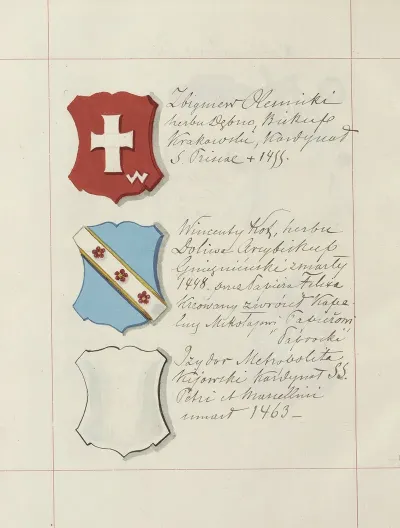 Zbigniew Oleśnicki
herbu Dębno, Biskup
Krakowski, Kardynał
S Priscae + 1455.
W
Wincenty Kot, herbu
Doliwa Arcybiskup
Gnieznieński zmarły
1448. dnia Papieża Felixa
Kreowany zwrócił Kape-
lusz Mikołajowi Papieżowi
Paprocki
Izydor Metropolita
Kijowski Kardynał SS.
Petri et Marcellini
umarł 1463 –